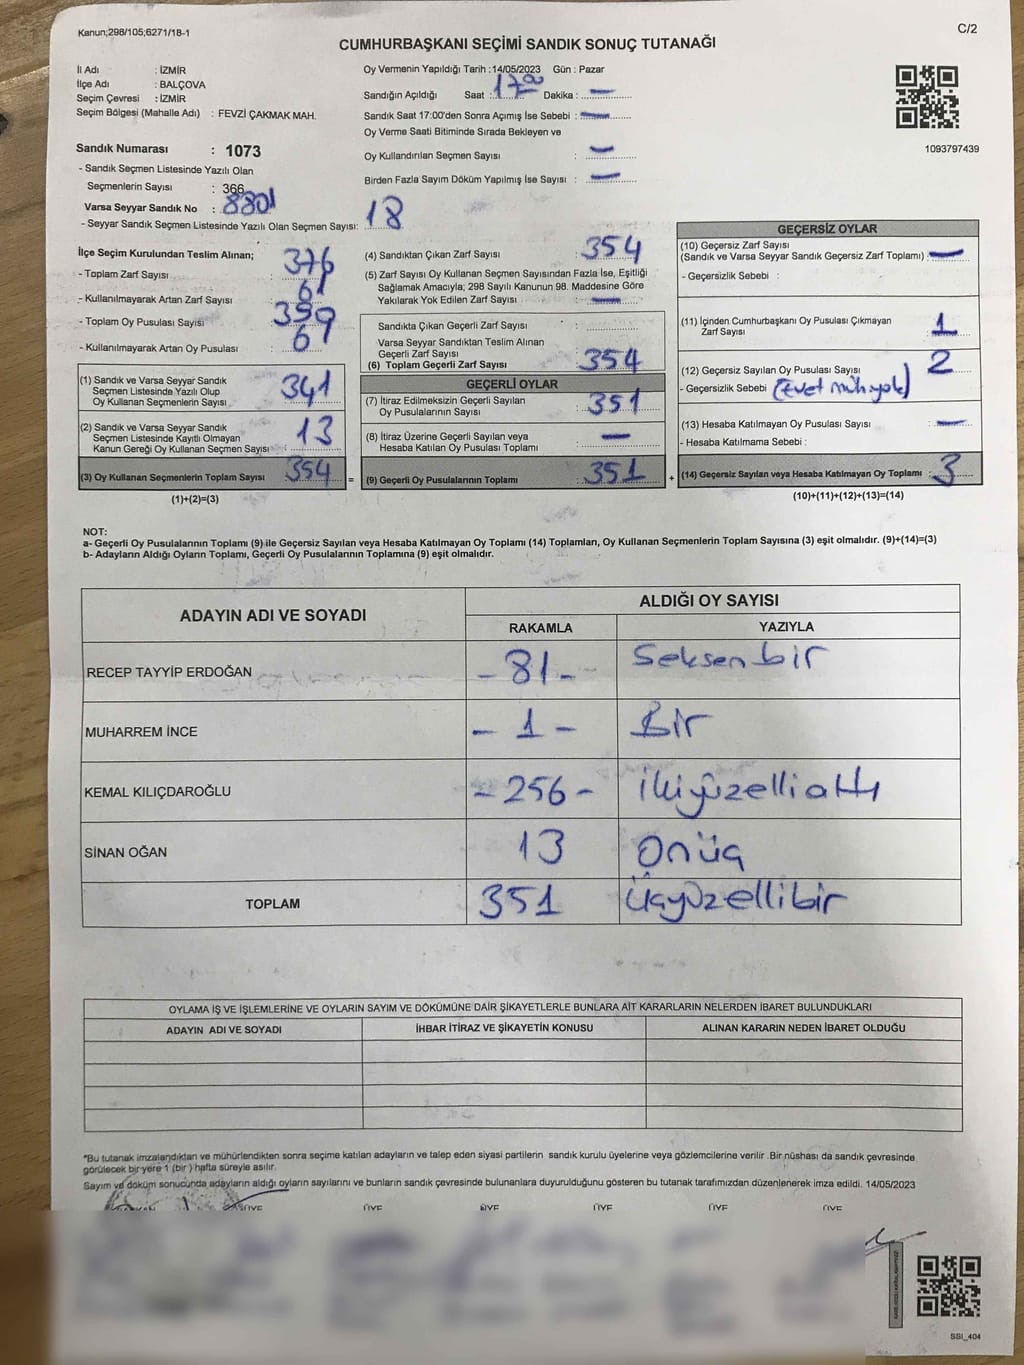 Kanun;298/105;6271/18-1
C/2
CUMHURBAŞKANI SEÇİMİ SANDIK SONUÇ TUTANAĞI
İl Adı : İZMİR
İlçe Adı : BALÇOVA
Seçim Çevresi : İZMİR
Seçim Bölgesi (Mahalle Adı) : FEVZİ ÇAKMAK MAH.
Sandık Numarası : 1073
- Sandık Seçmen Listesinde Yazılı Olan
Seçmenlerin Sayısı : 366
Varsa Seyyar Sandık No : 8801
- Seyyar Sandık Seçmen Listesinde Yazılı Olan Seçmen Sayısı: 18
Oy Vermenin Yapıldığı Tarih :14/05/2023 Gün : Pazar
Sandığın Açıldığı Saat : 17:00 Dakika : —
Sandık Saat 17:00'den Sonra Açımış İse Sebebi : —
Oy Verme Saati Bitiminde Sırada Bekleyen ve
Oy Kullandırılan Seçmen Sayısı : —
Birden Fazla Sayım Döküm Yapılmış İse Sayısı : —
1093797439
İlçe Seçim Kurulundan Teslim Alınan;
- Toplam Zarf Sayısı : 376
- Kullanılmayarak Artan Zarf Sayısı : 61
- Toplam Oy Pusulası Sayısı : 399
- Kullanılmayarak Artan Oy Pusulası : 61
(1) Sandık ve Varsa Seyyar Sandık
Seçmen Listesinde Yazılı Olup
Oy Kullanan Seçmenlerin Sayısı : 341
(2) Sandık ve Varsa Seyyar Sandık
Seçmen Listesinde Kayıtlı Olmayan
Kanun Gereği Oy Kullanan Seçmen Sayısı : 13
(3) Oy Kullanan Seçmenlerin Toplam Sayısı : 354
(1)+(2)=(3)
(4) Sandıktan Çıkan Zarf Sayısı : 354
(5) Zarf Sayısı Oy Kullanan Seçmen Sayısından Fazla İse, Eşitliği
Sağlamak Amacıyla; 298 Sayılı Kanunun 98. Maddesine Göre
Yakılarak Yok Edilen Zarf Sayısı : —
Sandıkta Çıkan Geçerli Zarf Sayısı :
Varsa Seyyar Sandıktan Teslim Alınan
Geçerli Zarf Sayısı :
(6) Toplam Geçerli Zarf Sayısı : 354
GEÇERLİ OYLAR
(7) İtiraz Edilmeksizin Geçerli Sayılan
Oy Pusulalarının Sayısı : 351
(8) İtiraz Üzerine Geçerli Sayılan veya
Hesaba Katılan Oy Pusulası Toplamı : —
= (9) Geçerli Oy Pusulalarının Toplamı : 351 +
GEÇERSİZ OYLAR
(10) Geçersiz Zarf Sayısı
(Sandık ve Varsa Seyyar Sandık Geçersiz Zarf Toplamı) : —
- Geçersizlik Sebebi :
(11) İçinden Cumhurbaşkanı Oy Pusulası Çıkmayan
Zarf Sayısı : 1
(12) Geçersiz Sayılan Oy Pusulası Sayısı : 2
- Geçersizlik Sebebi : (Evet mührü yok)
(13) Hesaba Katılmayan Oy Pusulası Sayısı : —
- Hesaba Katılmama Sebebi :
(14) Geçersiz Sayılan veya Hesaba Katılmayan Oy Toplamı : 3
(10)+(11)+(12)+(13)=(14)
NOT:
a- Geçerli Oy Pusulalarının Toplamı (9) ile Geçersiz Sayılan veya Hesaba Katılmayan Oy Toplamı (14) Toplamları, Oy Kullanan Seçmenlerin Toplam Sayısına (3) eşit olmalıdır. (9)+(14)=(3)
b- Adayların Aldığı Oyların Toplamı, Geçerli Oy Pusulalarının Toplamına (9) eşit olmalıdır.
ADAYIN ADI VE SOYADI
ALDIĞI OY SAYISI
RAKAMLA YAZIYLA
RECEP TAYYİP ERDOĞAN - 81 - Seksen bir
MUHARREM İNCE - 1 - Bir
KEMAL KILIÇDAROĞLU - 256 - İkiyüzellialtı
SİNAN OĞAN 13 Onüç
TOPLAM 351 Üçyüzellibir
OYLAMA İŞ VE İŞLEMLERİNE VE OYLARIN SAYIM VE DÖKÜMÜNE DAİR ŞİKAYETLERLE BUNLARA AİT KARARLARIN NELERDEN İBARET BULUNDUKLARI
ADAYIN ADI VE SOYADI İHBAR İTİRAZ VE ŞİKAYETİN KONUSU ALINAN KARARIN NEDEN İBARET OLDUĞU
*Bu tutanak imzalandıktan ve mühürlendikten sonra seçime katılan adayların ve talep eden siyasi partilerin sandık kurulu üyelerine veya gözlemcilerine verilir .Bir nüshası da sandık çevresinde
görülecek bir yere 1 (bir ) hafta süreyle asılır.
Sayım ve döküm sonucunda adayların aldığı oyların sayılarını ve bunların sandık çevresinde bulunanlara duyurulduğunu gösteren bu tutanak tarafımızdan düzenlenerek imza edildi. 14/05/2023
ÜYE ÜYE ÜYE ÜYE ÜYE ÜYE
SSI_404